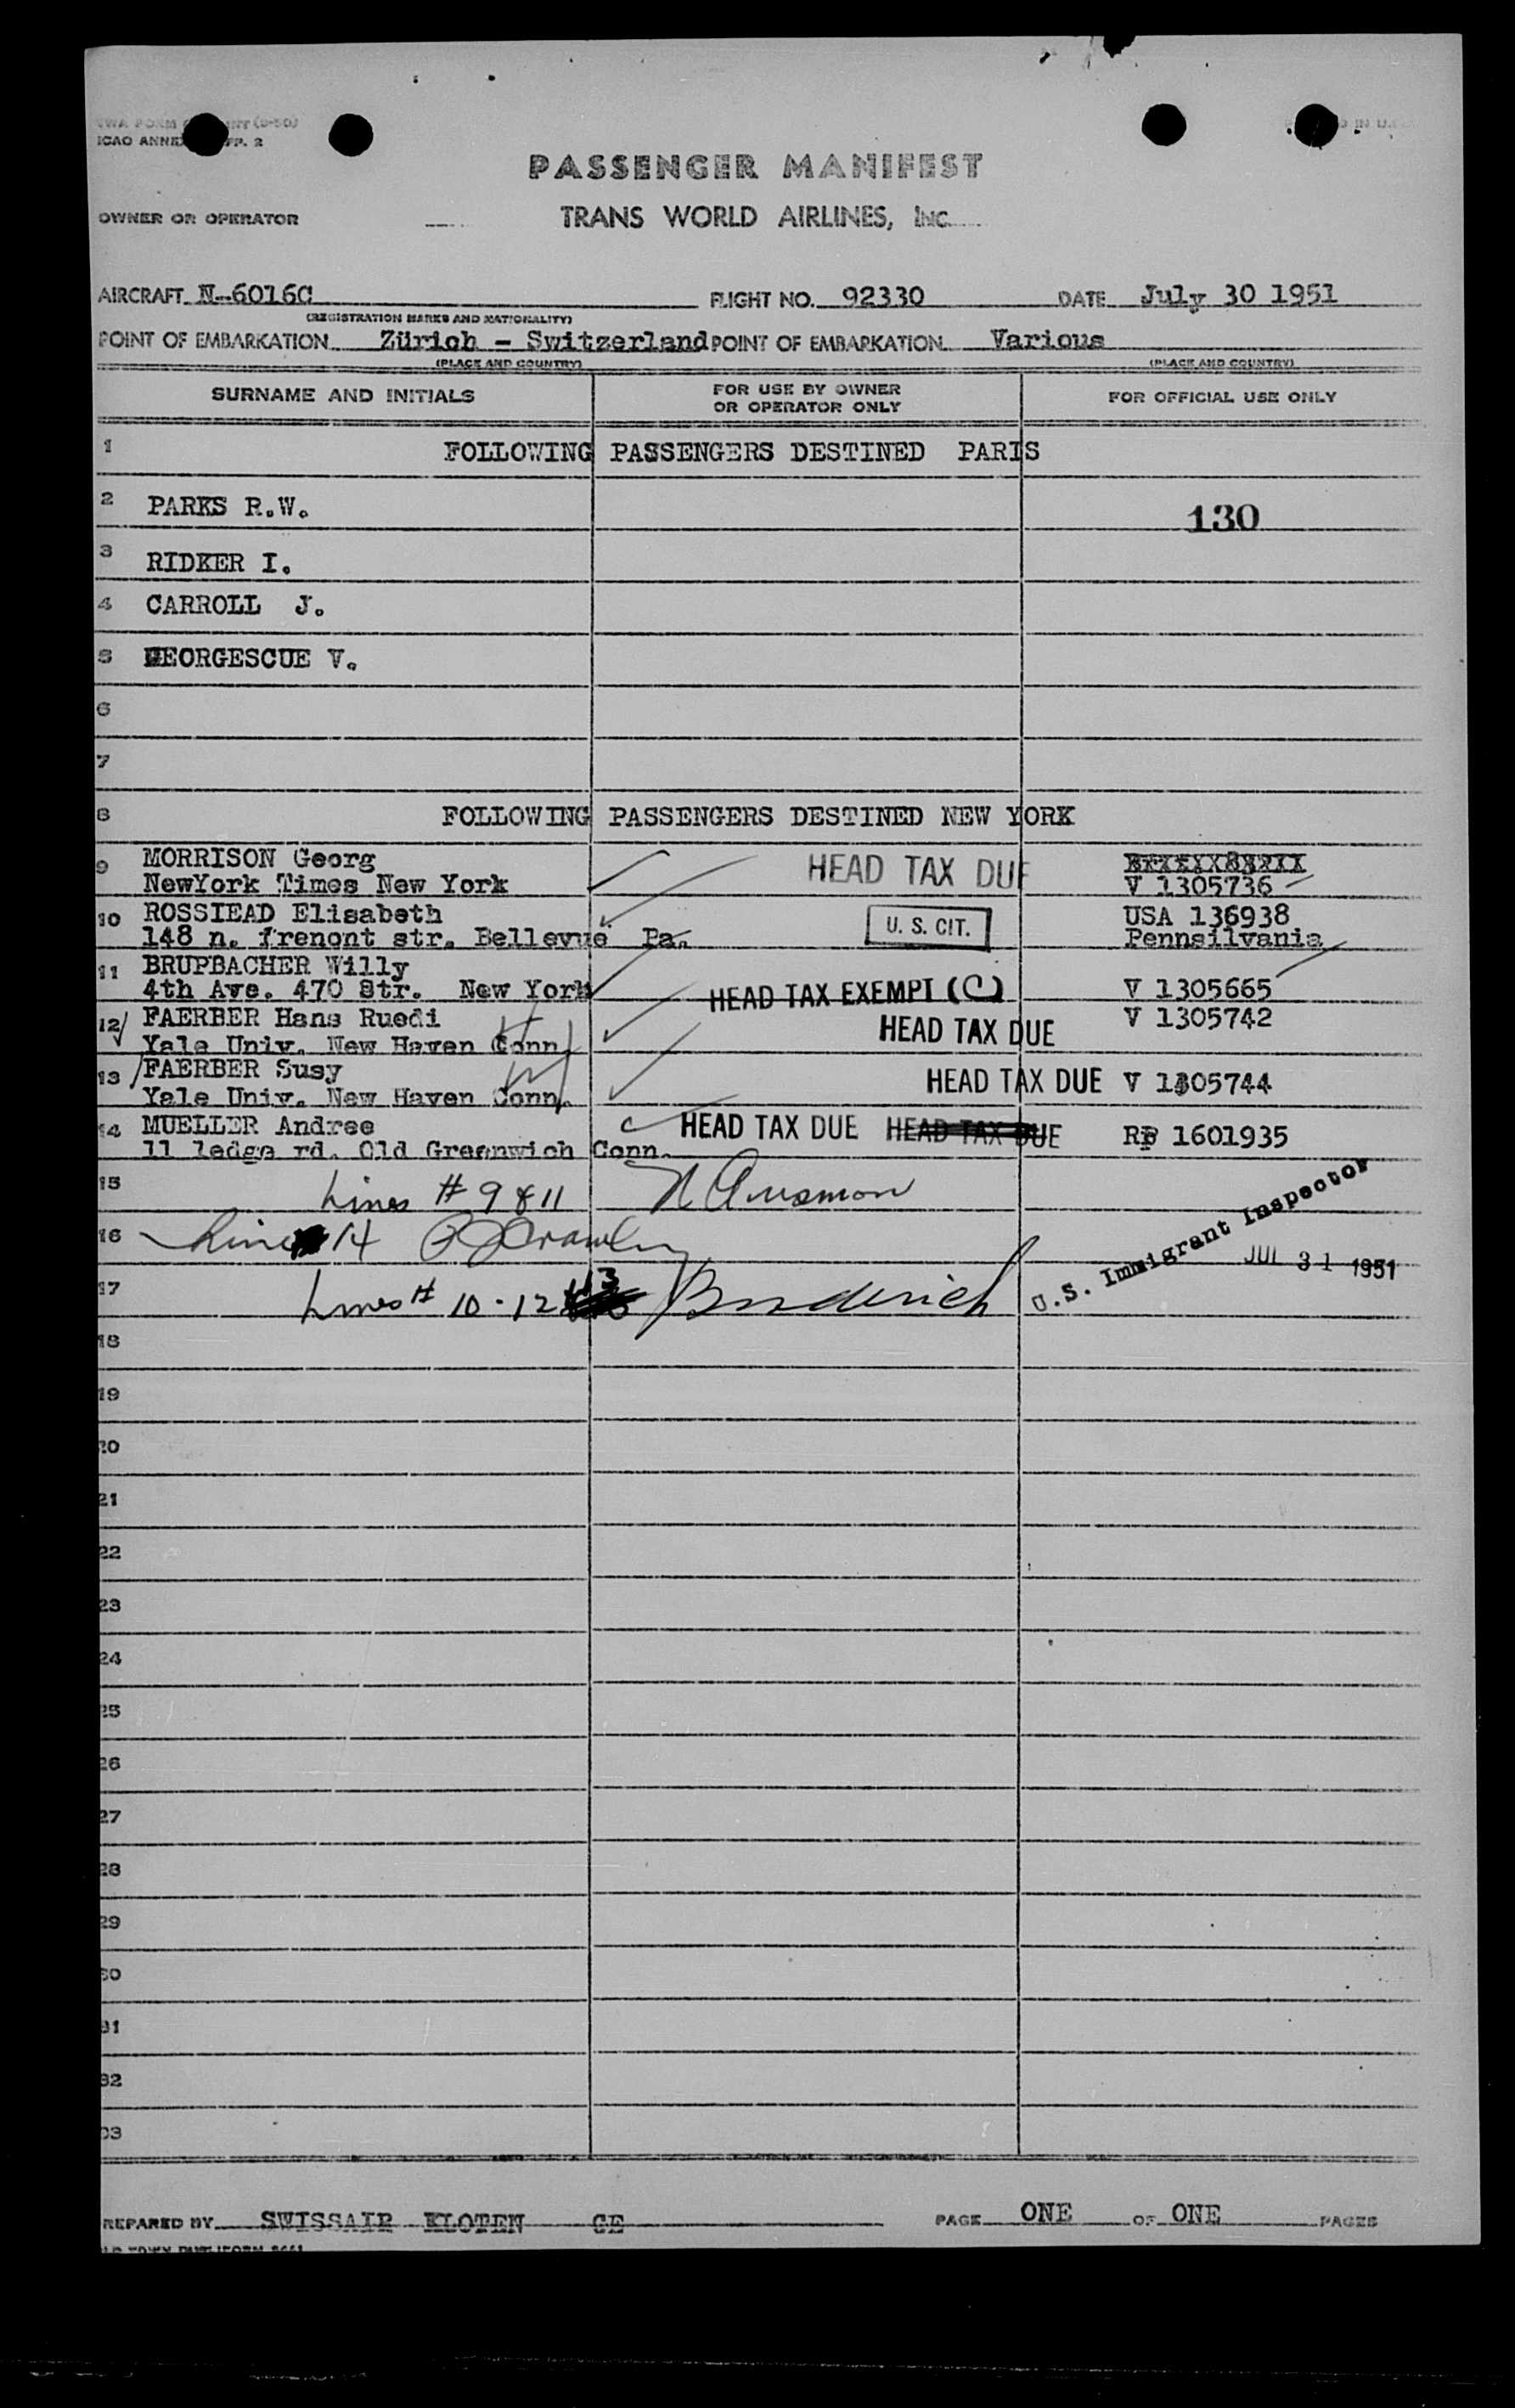 ICAO ANNEX
PASSENGER MANIFEST
OWNER OR OPERATOR TRANS WORLD AIRLINES, INC.
AIRCRAFT N-6016C FLIGHT NO. 92330 DATE July 30 1951
(REGISTRATION MARKS AND NATIONALITY)
POINT OF EMBARKATION Zürich - Switzerland POINT OF EMBARKATION Various
(PLACE AND COUNTRY) (PLACE AND COUNTRY)
SURNAME AND INITIALS FOR USE BY OWNER OR OPERATOR ONLY FOR OFFICIAL USE ONLY
1 FOLLOWING PASSENGERS DESTINED PARIS
2 PARKS R.W. 130
3 RIDKER I.
4 CARROLL J.
5 GEORGESCUE V.
6
7
8 FOLLOWING PASSENGERS DESTINED NEW YORK
9 MORRISON Georg HEAD TAX DUE
NewYork Times New York V 1305736
10 ROSSIEAD Elisabeth U. S. CIT. USA 136938
148 n. frenont str. Bellevue Pa. Pennsilvania
11 BRUPBACHER Willy
4th Ave. 470 Str. New York HEAD TAX EXEMPT (C) V 1305665
12 FAERBER Hans Ruedi HEAD TAX DUE V 1305742
Yale Univ. New Haven Conn.
13 FAERBER Susy HEAD TAX DUE V 1305744
Yale Univ. New Haven Conn.
14 MUELLER Andree HEAD TAX DUE HEAD TAX DUE RP 1601935
11 ledge rd. Old Greenwich Conn.
15 Lines # 9 & 11
16 Line 14
17 Lines # 10 - 12 & 13 Broderick
U.S. Immigrant Inspector
JUL 31 1951
18
19
20
21
22
23
24
25
26
27
28
29
30
31
32
33
PREPARED BY SWISSAIR KLOTEN CE PAGE ONE OF ONE PAGES